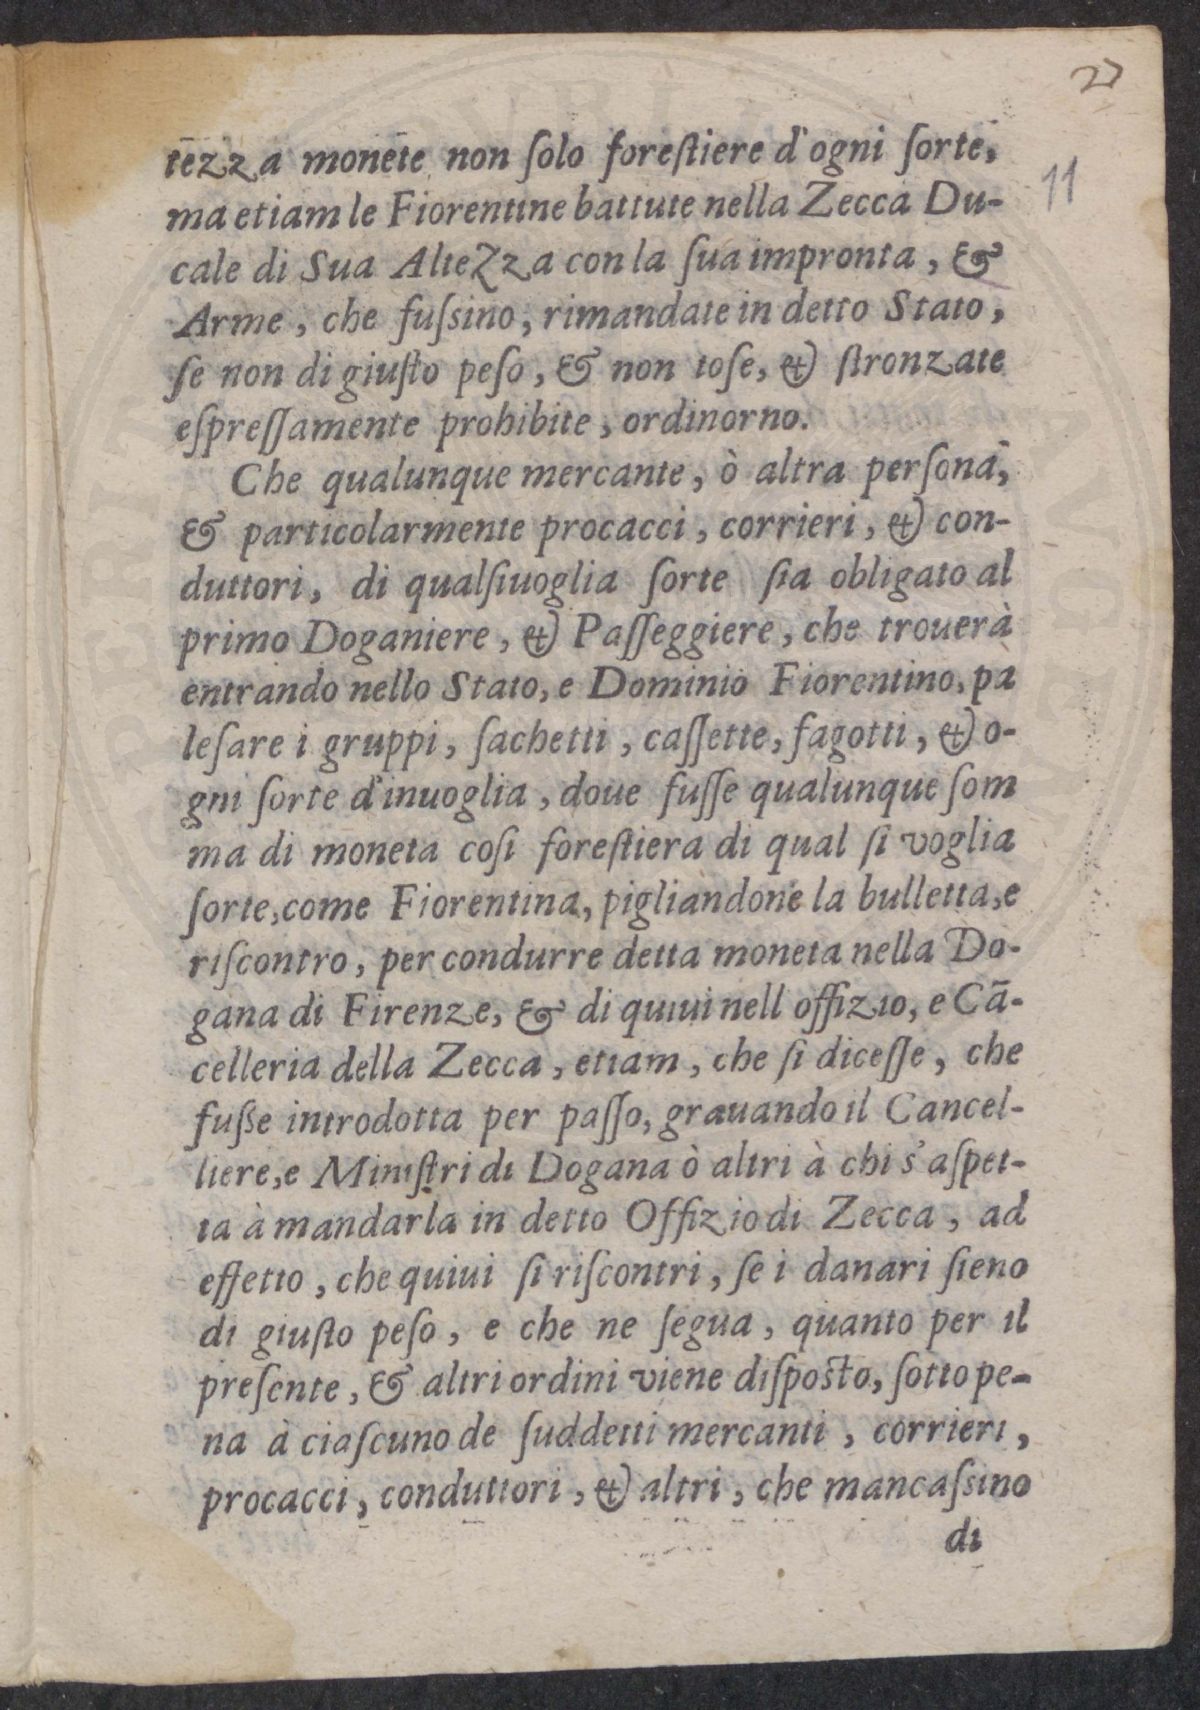 27
tezza monete non ſolo foreſtiere d'ogni ſorte,
11
ma etiam le Fiorentine battute nella Zecca Du-
cale di Sua Altezza con la ſua impronta, &
Arme, che fuſsino, rimandate in detto Stato,
ſe non di giuſto peſo, & non toſe, & ſtronzate
eſpreſſamente prohibite, ordinorno.
Che qualunque mercante, ò altra perſona,
& particolarmente procacci, corrieri, & con-
duttori, di qualſiuoglia ſorte ſia obligato al
primo Doganiere, & Paſſeggiere, che trouerà
entrando nello Stato, e Dominio Fiorentino, pa
leſare i gruppi, ſachetti, caſſette, fagotti, & o-
gni ſorte d'inuoglia, doue fuſſe qualunque ſom
ma di moneta coſi foreſtiera di qual ſi voglia
ſorte, come Fiorentina, pigliandone la bulletta, e
riſcontro, per condurre detta moneta nella Do-
gana di Firenze, & di quiui nell offizio, e Cā-
celleria della Zecca, etiam, che ſi diceſſe, che
fuſse introdotta per paſſo, grauando il Cancel-
liere, e Miniſtri di Dogana ò altri à chi s'aſpet-
ta à mandarla in detto Offizio di Zecca, ad
effetto, che quiui ſi riſcontri, ſe i danari ſieno
di giuſto peſo, e che ne ſegua, quanto per il
preſente, & altri ordini viene diſpoſto, ſotto pe-
na à ciaſcuno de ſuddetti mercanti, corrieri,
procacci, conduttori, & altri, che mancaſsino
di